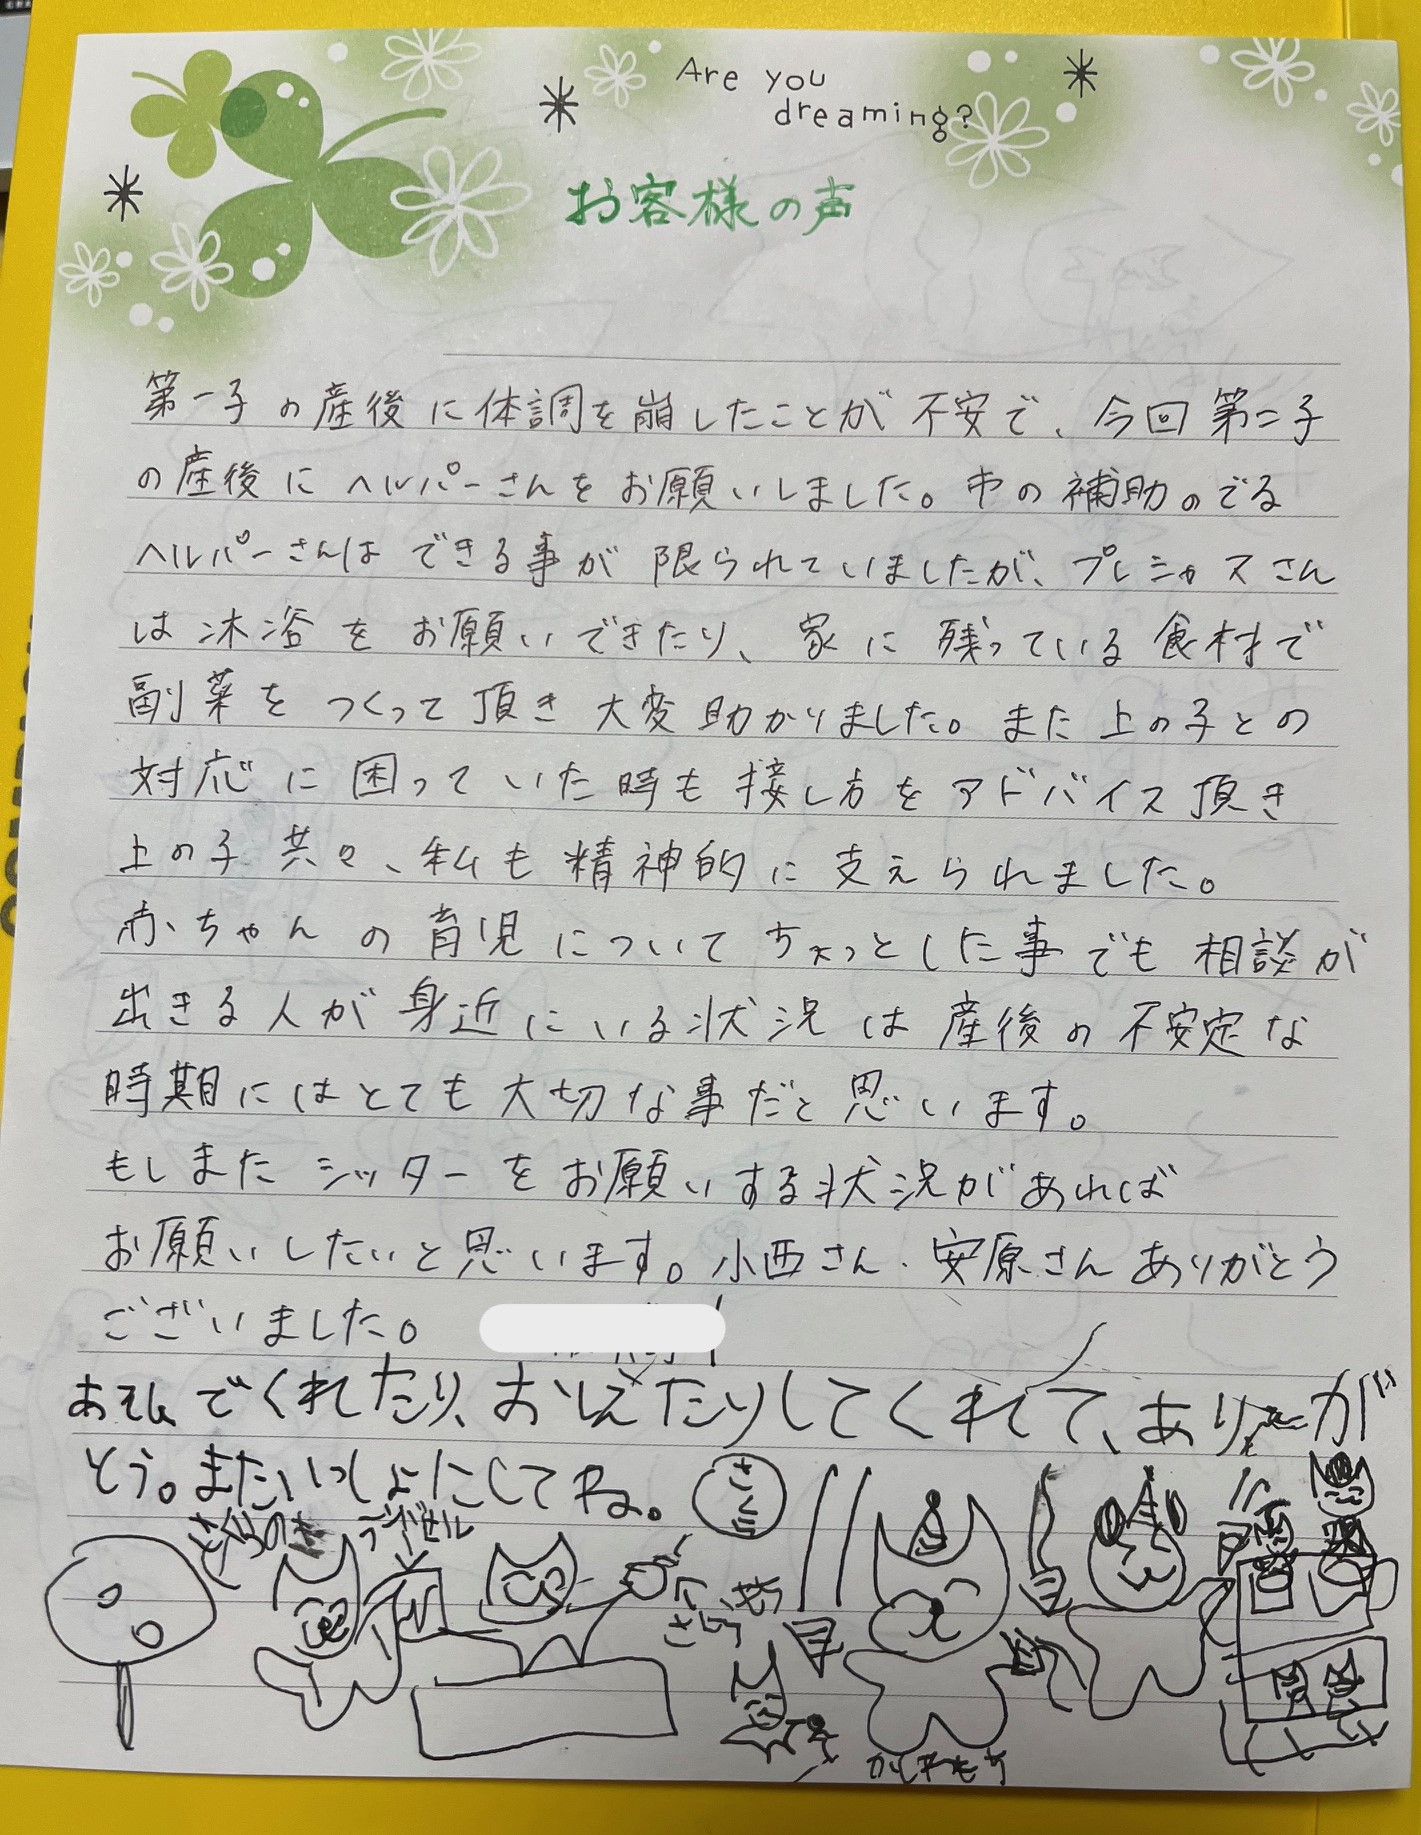 Are you
dreaming?
お客様の声
第一子の産後に体調を崩したことが不安で、今回第二子
の産後にヘルパーさんをお願いしました。市の補助のでる
ヘルパーさんはできる事が限られていましたが、プレシャスさん
は沐浴をお願いできたり、家に残っている食材で
副菜をつくって頂き大変助かりました。また上の子との
対応に困っていた時も接し方をアドバイス頂き
上の子共々、私も精神的に支えられました。
赤ちゃんの育児についてちょっとした事でも相談が
出きる人が身近にいる状況は産後の不安定な
時期にはとても大切な事だと思います。
もしまたシッターをお願いする状況があれば
お願いしたいと思います。小西さん・安原さんありがとう
ございました。
あそんでくれたり、おしえたりしてくれて、ありが
とう。またいっしょにしてね。
さくらのき